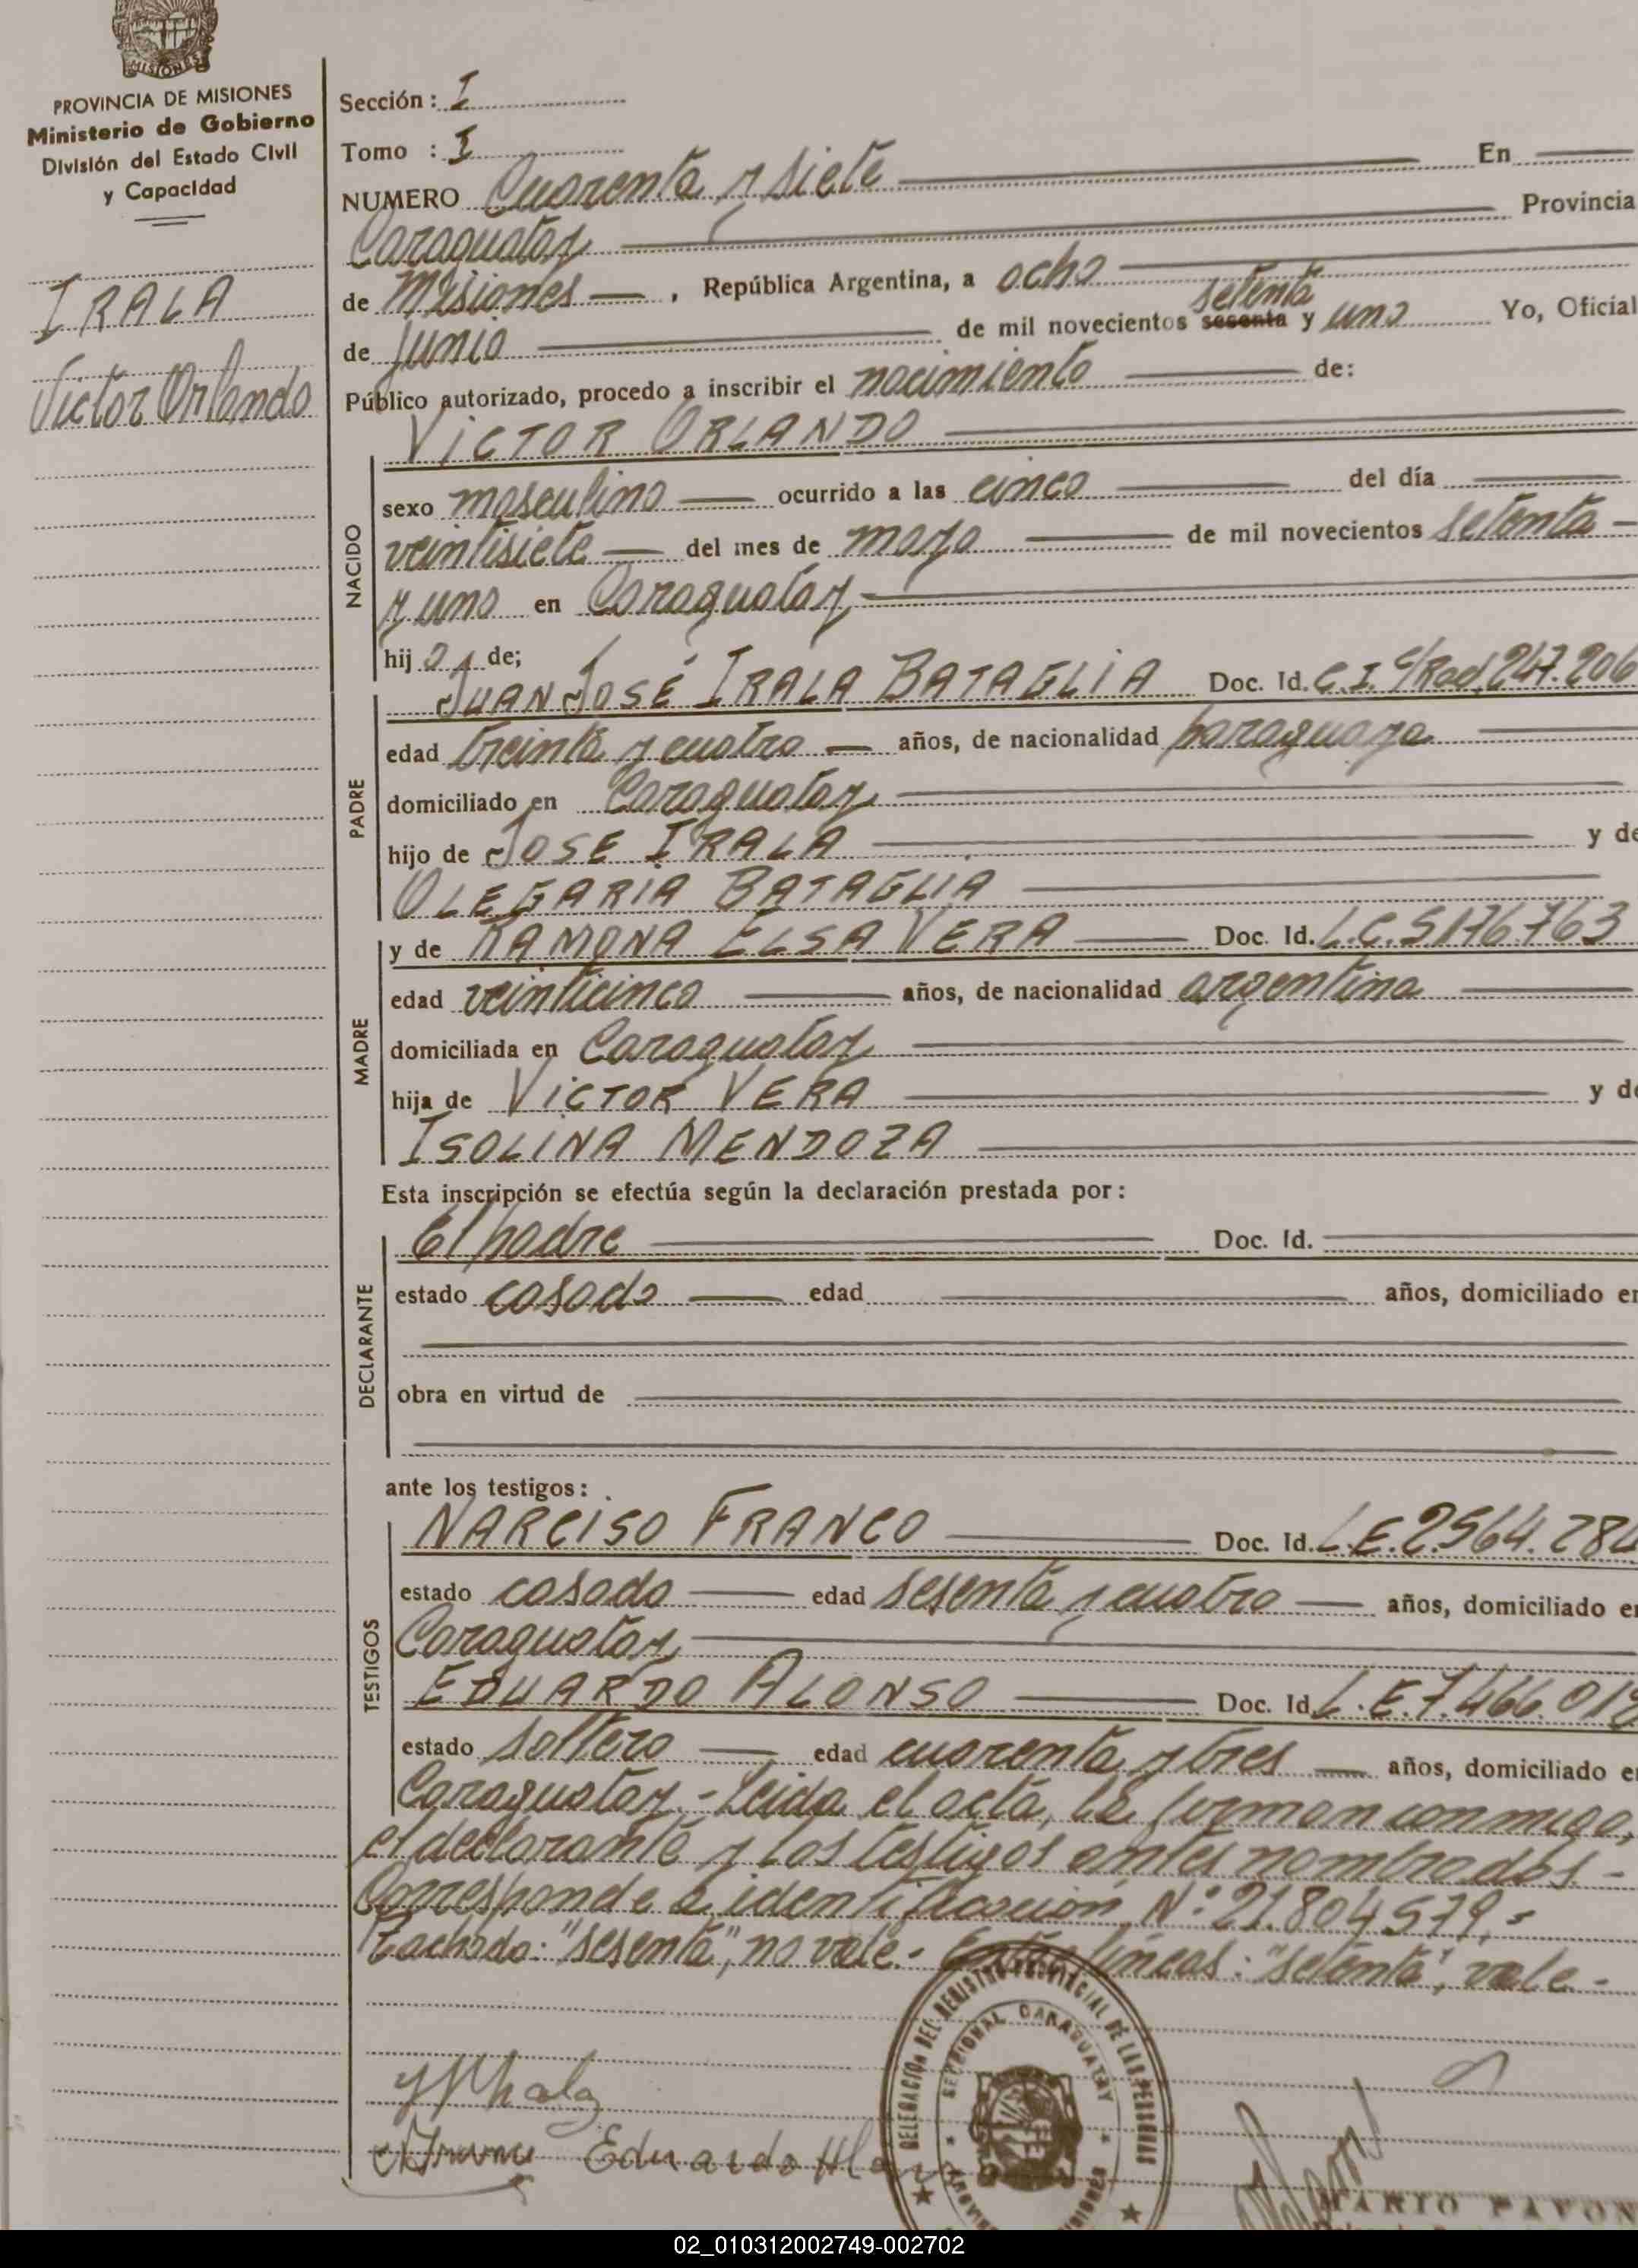 MISIONES
PROVINCIA DE MISIONES
Ministerio de Gobierno
División del Estado Civil
y Capacidad
IRALA
Victor Orlando
Sección: I
Tomo : I
NUMERO Cuarenta y siete En
Caraguatay Provincia
de Misiones, República Argentina, a ocho
de junio de mil novecientos sesenta setenta y uno Yo, Oficial
Público autorizado, procedo a inscribir el nacimiento de:
VICTOR ORLANDO
NACIDO
sexo masculino ocurrido a las cinco del día
veintisiete del mes de mayo de mil novecientos setenta
y uno en Caraguatay
hij o de;
JUAN JOSÉ IRALA BATAGLIA Doc. Id. C.I. c/Rad. 247.206
PADRE
edad treinta y cuatro años, de nacionalidad paraguaya
domiciliado en Caraguatay
hijo de JOSE IRALA y de
OLEGARIA BATAGLIA
MADRE
y de RAMONA ELSA VERA Doc. Id. L.C. 5176763
edad veinticinco años, de nacionalidad argentina
domiciliada en Caraguatay
hija de VICTOR VERA y de
ISOLINA MENDOZA
Esta inscripción se efectúa según la declaración prestada por:
DECLARANTE
El padre Doc. Id.
estado casado edad años, domiciliado en
obra en virtud de
ante los testigos:
TESTIGOS
NARCISO FRANCO Doc. Id. L.E. 2.564.284
estado casado edad sesenta y cuatro años, domiciliado en
Caraguatay
EDUARDO ALONSO Doc. Id. L.E. 7.466.018
estado soltero edad cuarenta y tres años, domiciliado en
Caraguatay.- Leida el acta, la firman conmigo,
el declarante y los testigos antes nombrados.-
Corresponde a identificación N° 21.804579.-
Tachado: "sesenta", no vale.- Entre líneas: "setenta", vale.-
DELEGACION DEL REGISTRO PROVINCIAL DE LAS PERSONAS
SECCIONAL CARAGUATAY
MISIONES
Eduardo Alonso
MARIO PAVON
02_010312002749-002702